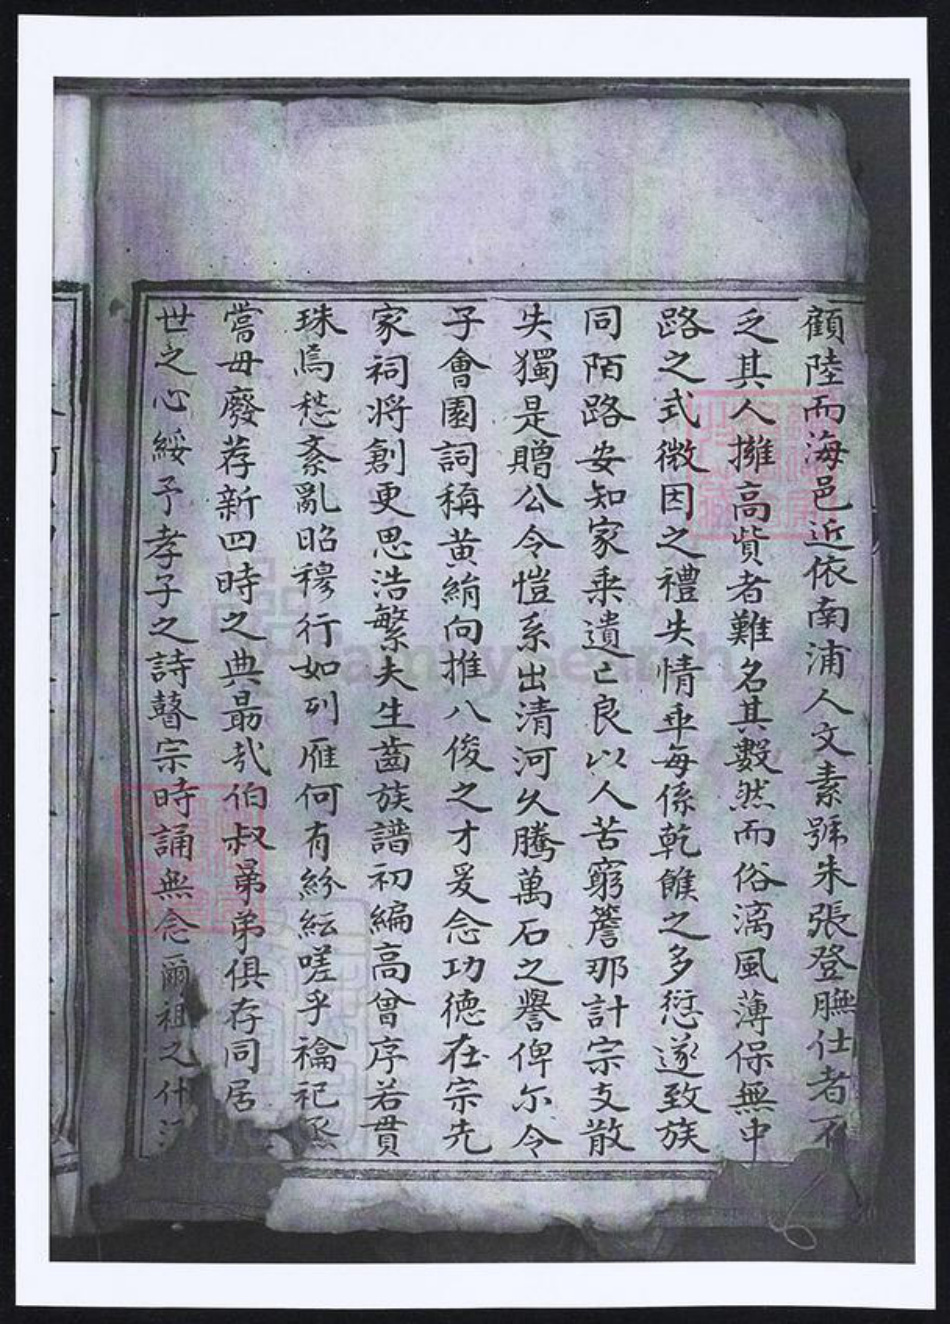 顧陸而海邑近依南浦人文素號朱張登膴仕者不
乏其人擁高貲者難名其數然而俗漓風薄保無中
路之式微因之禮失情乖每係乾餱之多愆遂致族
同陌路安知家乘遺亡良以人苦窮簷那計宗支散
失獨是贈公令愷系出清河久騰萬石之譽俾尔令
子會園詞稱黃絹向推八俊之才爰念功德在宗先
家祠將創更思浩繁夫生齒族譜初編高曾序若貫
珠焉愁紊亂昭穆行如列雁何有紛紜嗟乎禴祀烝
嘗毋廢荐新四時之典最哉伯叔弟弟俱存同居
世之心綏予孝子之詩瞽宗時誦無念爾祖之什
FamilySearch